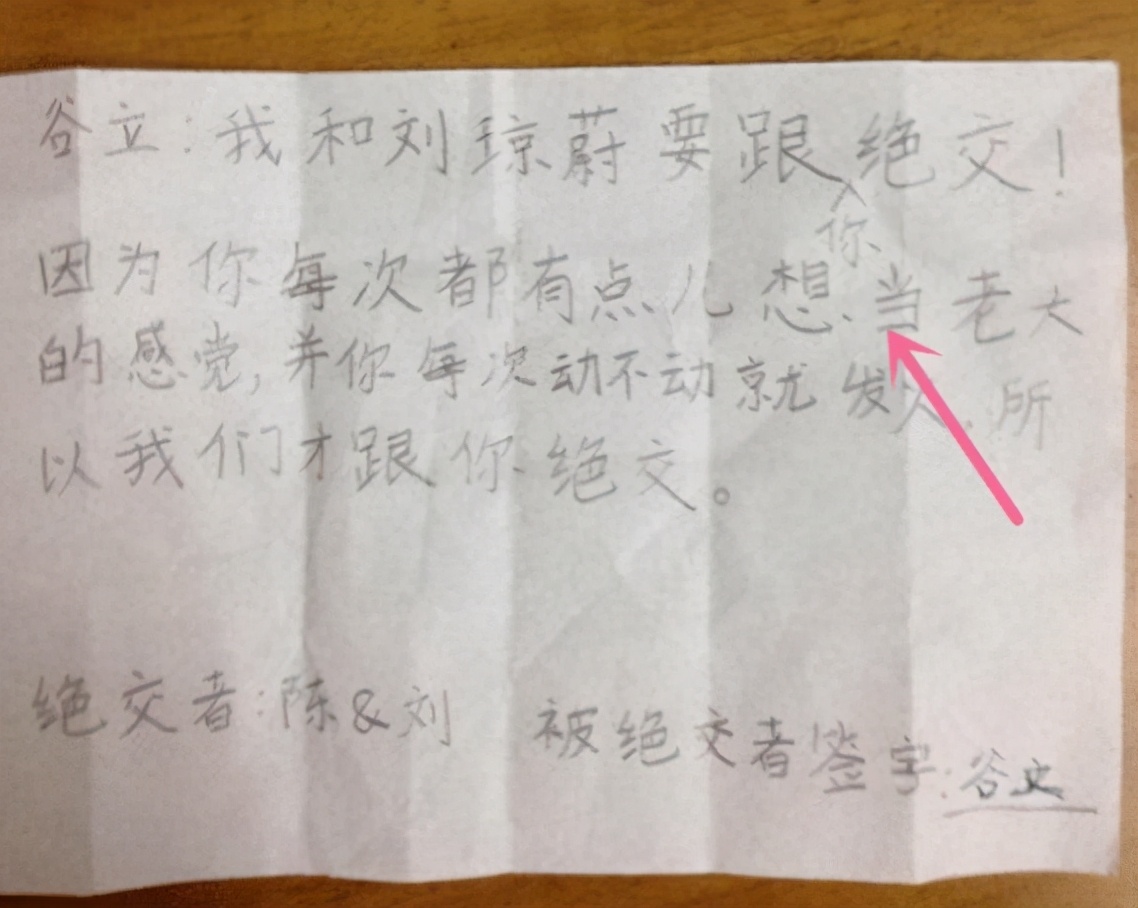 谷立:我和刘琼蔚要跟你绝交!
因为你每次都有点儿想、当老大
的感觉,并你每次动不动就发火,所
以我们才跟你绝交。
绝交者:陈&刘 被绝交者签字:谷文